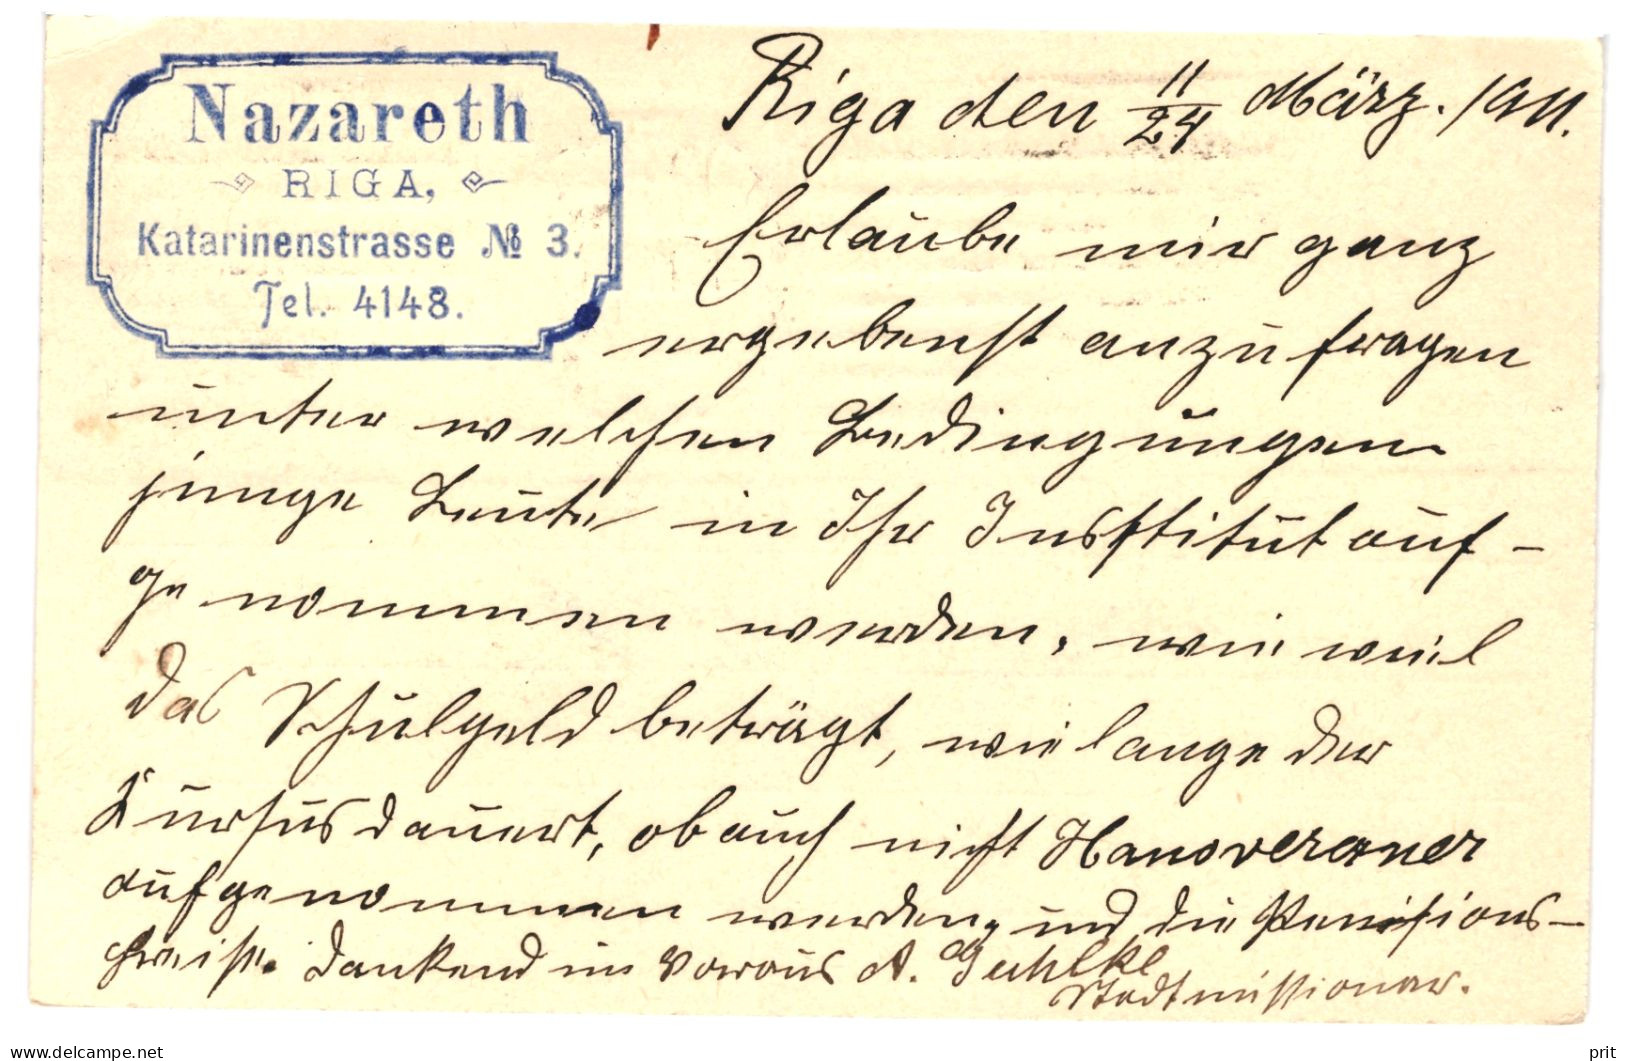 Nazareth
RIGA,
Katarinenstrasse № 3.
Tel. 4148.
Riga den 11/24 März. 1911.
Erlaube mir ganz
ergebenst anzufragen
unter welchen Bedingungen
junge Leute in Ihr Institut auf-
genommen werden, wie viel
das Schulgeld beträgt, wie lange der
Kursus dauert, ob auch nicht Hanoveraner
aufgenommen werden, und die Pensions-
preise. Dankend im Voraus A.
Stadtmissionar.
delcampe.net
prit